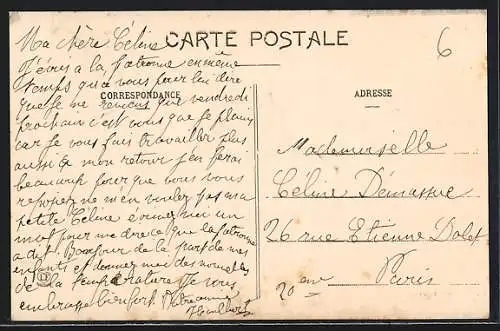 CARTE POSTALE
6
CORRESPONDANCE
ADRESSE
Ma chère Céline
J'écris a la patronne en même
temps qu'a vous pour lui dire
que je ne reviens que vendredi
prochain c'est vous que je plains
car je vous fais travailler plus
aussi a mon retour j'en ferai
beaucoup pour que vous vous
reposez ne m'en voulez pas ma
petite Céline écrivez moi un
mot pour me dire ce que la patronne
a dit. Bonjour de la part de mes
enfants et donnez moi des nouvelles
de la température Je vous
embrasse bien fort
Mademoiselle
Céline Démassue
26 rue Etienne Dolet
Paris
20 eme